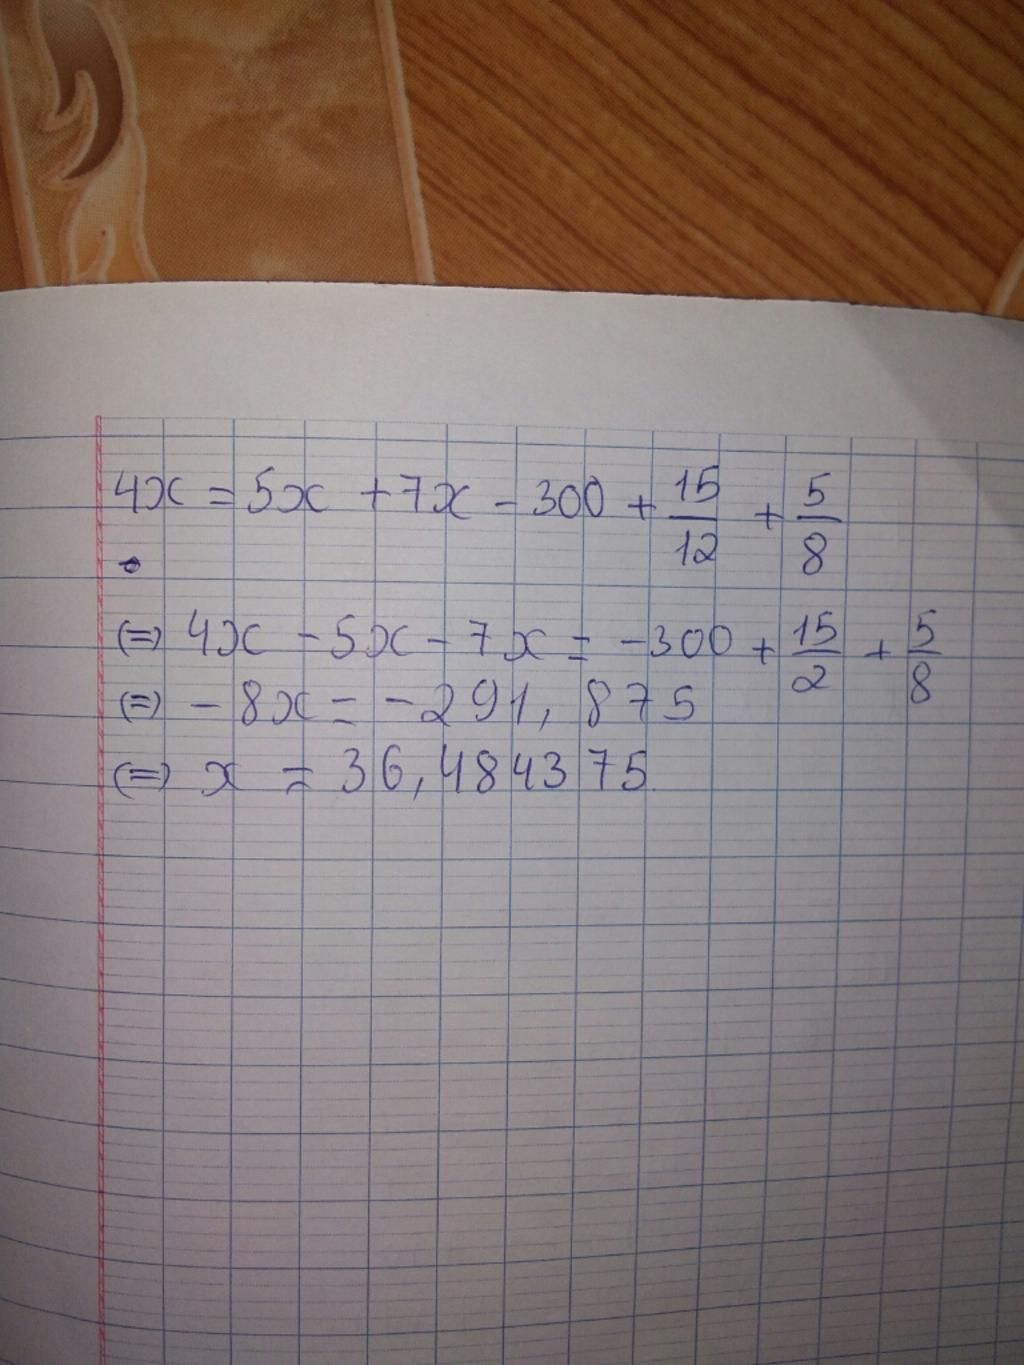 4x = 5x + 7x - 300 + 15/12 + 5/8
(=) 4x - 5x - 7x = -300 + 15/2 + 5/8
(=) - 8x = - 291,875
(=) x = 36,484375